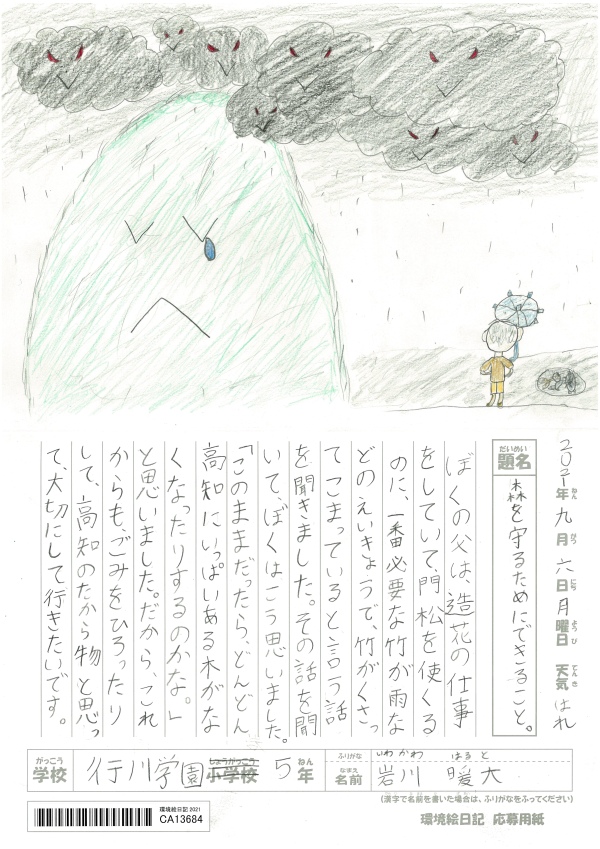 2021年九月六日月曜日 天気はれ
ねん がつ にち ようび てんき
だいめい
題名 森を守るためにできること。
ぼくの父は、造花の仕事
をしていて、門松を使くる
のに、一番必要な竹が雨な
どのえいきょうで、竹がくさっ
てこまっていると言う話
を聞きました。その話を聞
いて、ぼくはこう思いました。
「このままだったら、どんどん
高知にいっぱいある木がな
くなったりするのかな。」
と思いました。だから、これ
からも、ごみをひろったり
して、高知のたから物と思っ
て、大切にして行きたいです。
がっこう しょうがっこう ねん
学校 行川学園 小学校 5年
ふりがな いわかわ はると
なまえ
名前 岩川 暖大
(漢字で名前を書いた場合は、ふりがなをふってください)
環境絵日記 2021
CA13684
環境絵日記 応募用紙